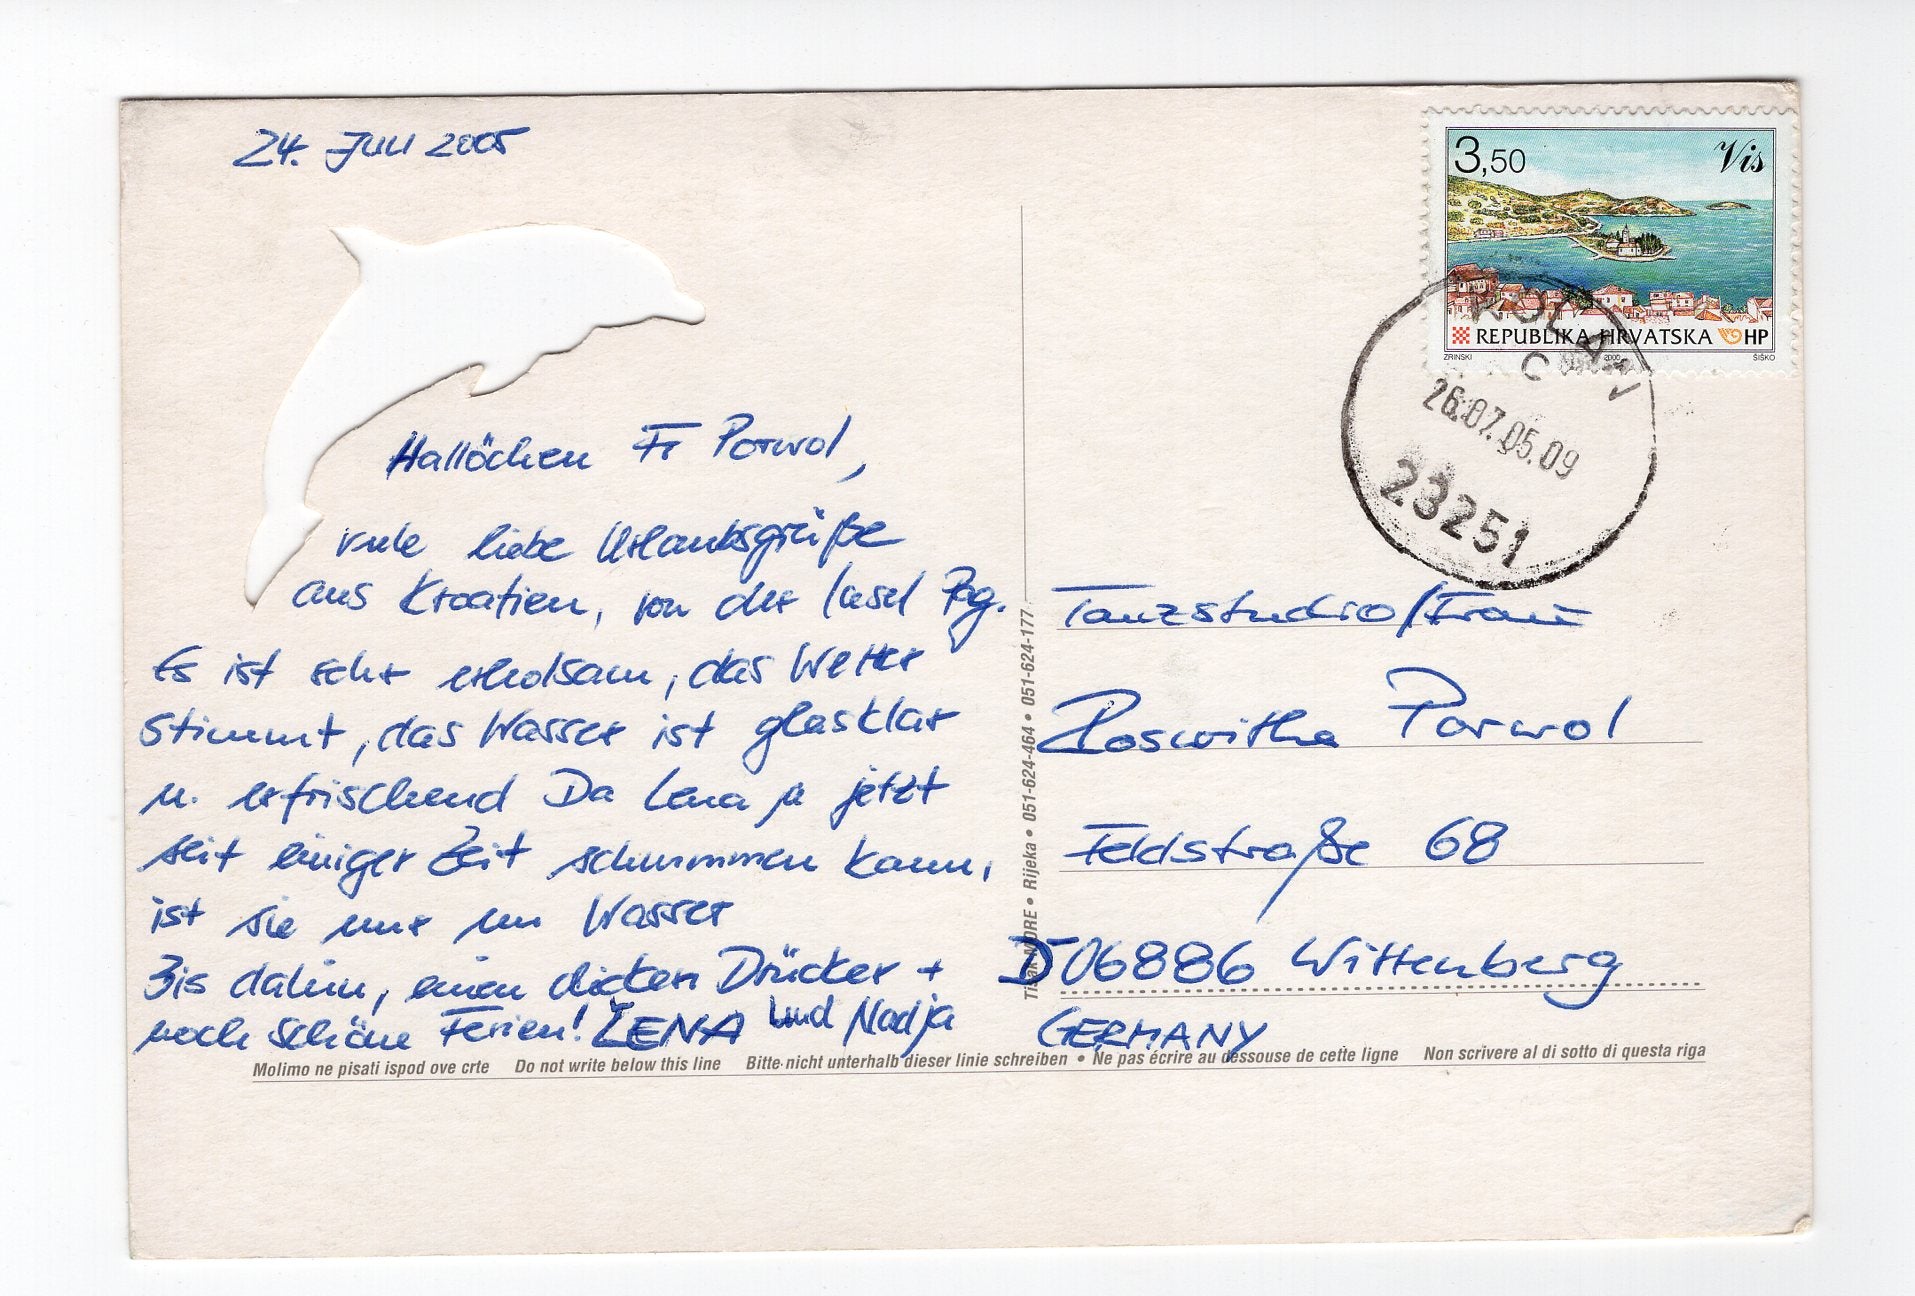 24. Juli 2005
Hallöchen Fr Porwol,
viele liebe Urlaubsgrüße
aus Kroatien, von der Insel Pag.
Es ist sehr erholsam, das Wetter
stimmt, das Wasser ist glasklar
u. erfrischend Da Lena ja jetzt
seit einiger Zeit schwimmen kann,
ist sie nur im Wasser
Bis dahin, einen dicken Drücker +
noch schöne Ferien! LENA und Nadja
3,50 Vis
REPUBLIKA HRVATSKA HP
ZRINSKI 2000 ŠIŠKO
KOLAN
C
26.07.05.09
23251
Tanzstudio/Frau
Roswitha Porwol
Feldstraße 68
D 06886 Wittenberg
GERMANY
MORE • Rijeka • 051-624-464 • 051-624-177
Molimo ne pisati ispod ove crte Do not write below this line Bitte nicht unterhalb dieser linie schreiben • Ne pas écrire au dessouse de cette ligne Non scrivere al di sotto di questa riga